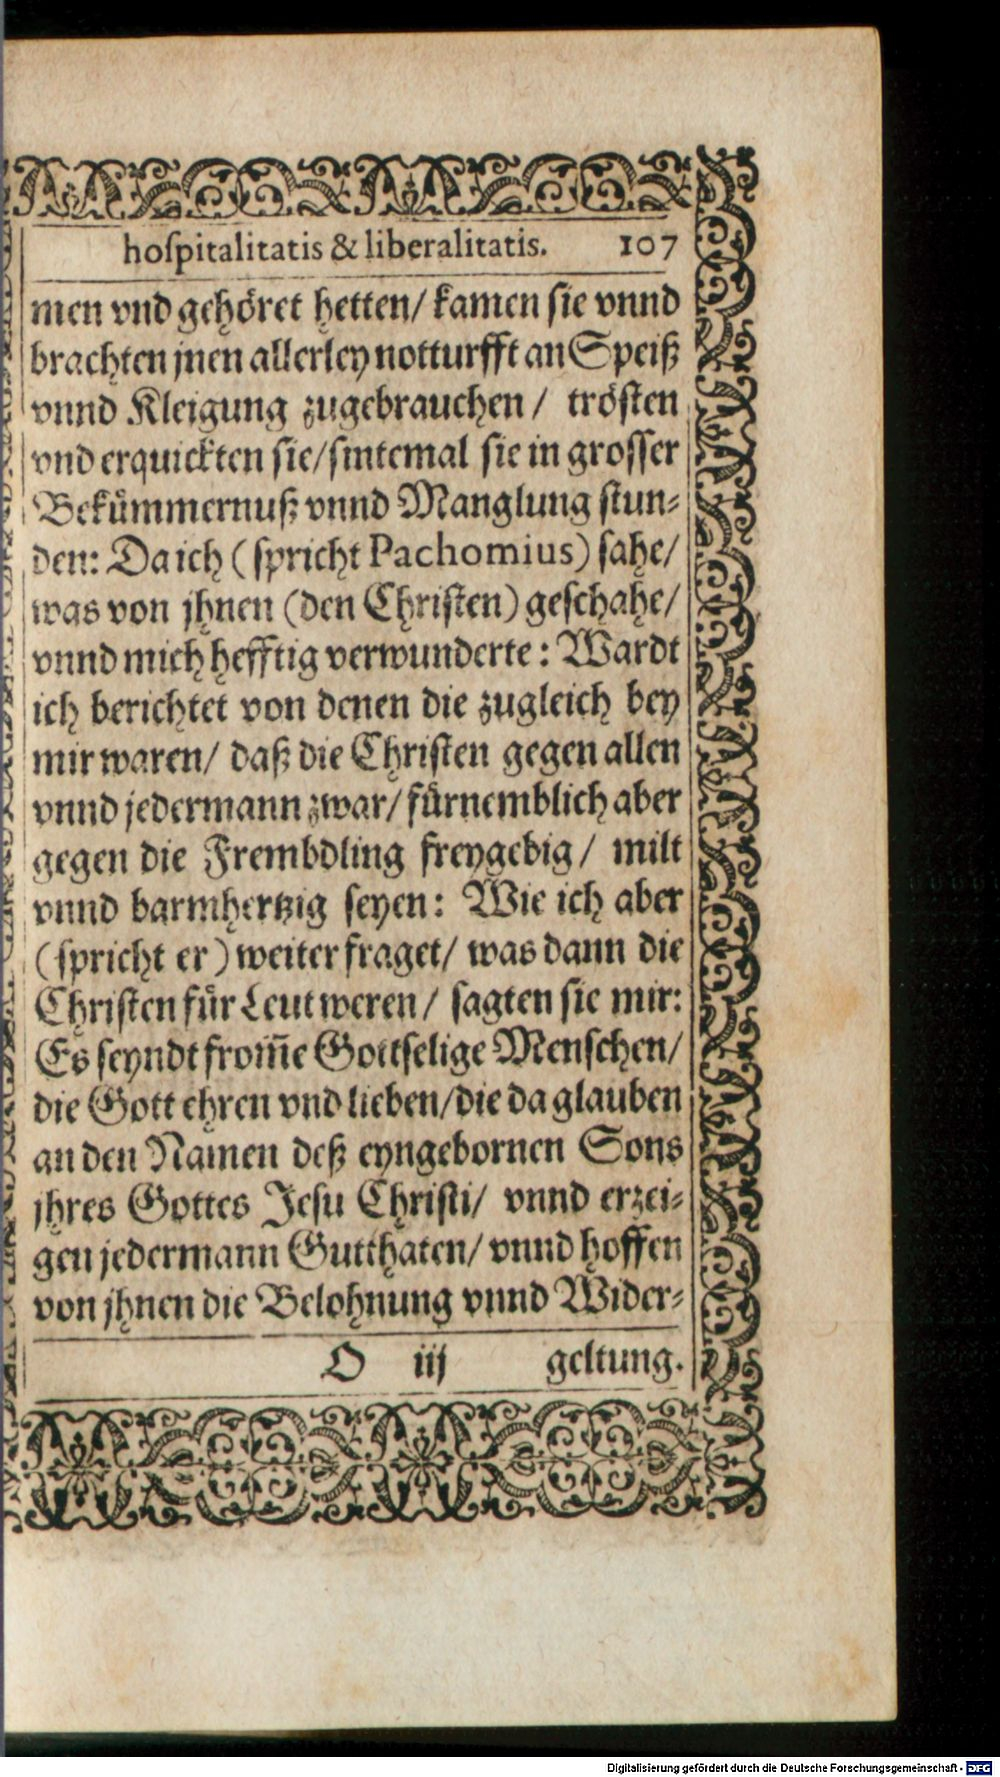 hoſpitalitatis & liberalitatis. 107
men vnd gehöret hetten/ kamen ſie vnnd
brachten jnen allerley notturfft an Speiß
vnnd Kleigung zugebrauchen / tröſten
vnd erquickten ſie/ſintemal ſie in groſſer
Bekümmernuß vnnd Manglung ſtun⸗
den: Da ich (ſpricht Pachomius) ſahe/
was von jhnen (den Chriſten) geſchahe/
vnnd mich hefftig verwunderte: Wardt
ich berichtet von denen die zugleich bey
mir waren/ daß die Chriſten gegen allen
vnnd jedermann zwar/ fürnemblich aber
gegen die Frembdling freygebig/ milt
vnnd barmhertzig ſeyen: Wie ich aber
(ſpricht er) weiter fraget/ was dann die
Chriſten für Leut weren/ ſagten ſie mir:
Es ſeyndt from̃e Gottſelige Menſchen/
die Gott ehren vnd lieben/die da glauben
an den Namen deß eyngebornen Sons
jhres Gottes Jeſu Chriſti/ vnnd erzei⸗
gen jedermann Gutthaten/ vnnd hoffen
von jhnen die Belohnung vnnd Wider⸗
O iij geltung.
Digitalisierung gefördert durch die Deutsche Forschungsgemeinschaft - DFG